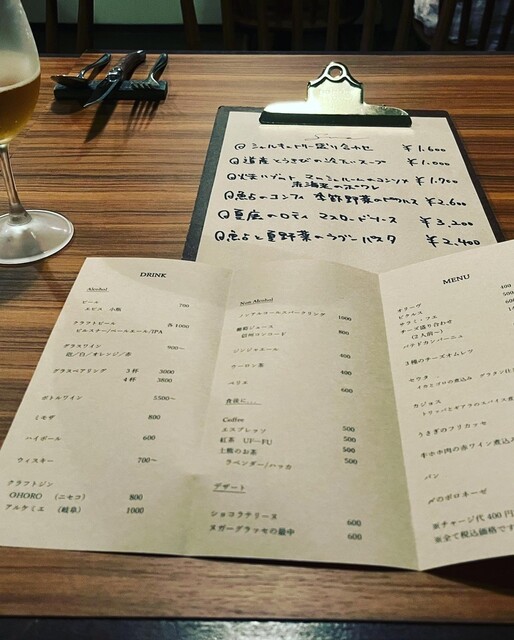 ①シャルキュトリー盛り合わせ ¥1,600
②道産とうきびの冷たいスープ ¥1,000
¥1,700
④魚介のコンフィ 季節野菜のピクルス ¥2,600
⑤夏鹿のロティ マスタードソース ¥3,200
⑥魚介と夏野菜のラグーパスタ ¥2,400
DRINK
Alcohol
ビール
エビス 小瓶 700
クラフトビール 各1000
ピルスナー/ペールエール/IPA
グラスワイン 900~
泡/白/オレンジ/赤
グラスペアリング 3杯 3000
4杯 3800
ボトルワイン 5500~
ミモザ 800
ハイボール 600
ウィスキー 700~
クラフトジン
OHORO (ニセコ) 800
アルケミエ (岐阜) 1000
Non Alcohol
ノンアルコールスパークリング 1000
葡萄ジュース
信州コンコード 800
ジンジャエール 400
ウーロン茶 400
ペリエ 600
食後に...
Coffee
エスプレッソ 500
紅茶 UF-FU 500
土瓶のお茶 500
ラベンダー/ハッカ 500
デザート
ショコラテリーヌ 600
ヌガーグラッセの最中 600
MENU
オリーヴ 400
ピクルス
サラミ・フエ
チーズ盛り合わせ
(2人前~)
パテドカンパーニュ
3種のチーズオムレツ
セウタ
イカとゴロの煮込み グラタン仕
カジョス
トリッパとギアラのスパイス煮
うさぎのフリカッセ
牛ホホ肉の赤ワイン煮込み
パン
〆のボロネーゼ
※チャージ代400円
※全て税込価格です